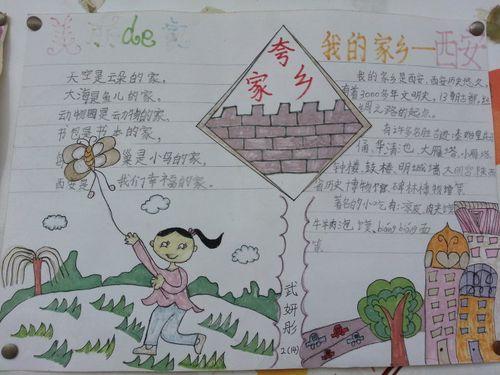 美丽de家
天空是云朵的家,
大海是鱼儿的家。
动物园是动物的家,
书包是书本的家,
巢是小鸟的家。
西安是我们幸福的家。
夸
家乡
我的家乡—西安
我的家乡是西安,西安历史悠久,
有着3000多年文明史,13朝古都,丝
绸之路的起点。
有许多名胜古迹:秦始皇兵马
俑、华清池、大雁塔、小雁塔、
钟楼、鼓楼、明城墙、大明宫、陕西
省历史博物馆、碑林博物馆等。
著名的小吃有:凉皮、肉夹馍、
牛羊肉泡馍、biángbiáng面
等。
武妍彤
2(14)